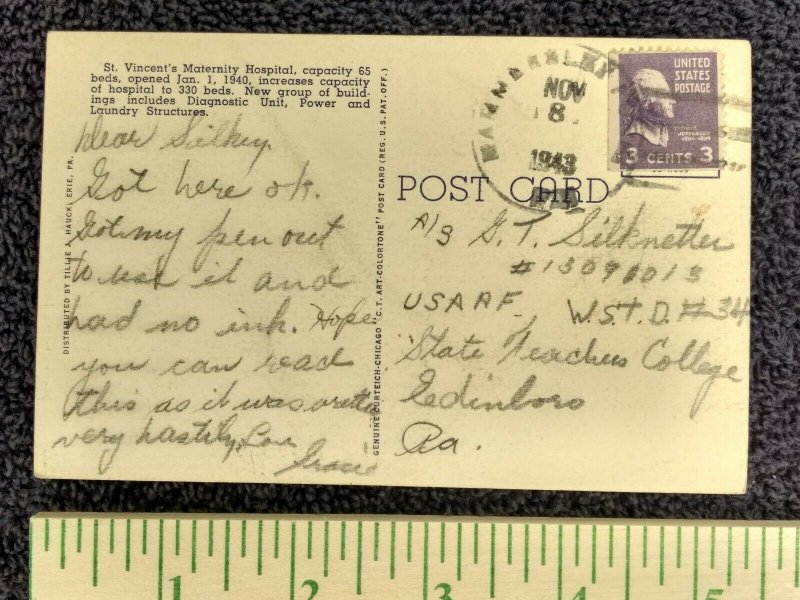 St. Vincent's Maternity Hospital, capacity 65
beds, opened Jan. 1, 1940, increases capacity
of hospital to 330 beds. New group of build-
ings includes Diagnostic Unit, Power and
Laundry Structures.
Dear Silkey.
Got here ok.
Got my pen out
to use it and
had no ink. Hope
you can read
this as it was
very hastily. Love
Gracie
DISTRIBUTED BY TILLIE J. HAUCK, ERIE, PA.
GENUINE CURTEICH-CHICAGO "C.T. ART-COLORTONE" POST CARD (REG. U.S. PAT. OFF.)
POST CARD
NOV
8
1943
UNITED
STATES
POSTAGE
THOMAS
JEFFERSON
1801-1809
3 CENTS 3
A/S G. T. Silknetter
#13090013
USAAF. W.S.T.D. #34
State Teachers College
Edinboro
Pa.
1 2 3 4 5